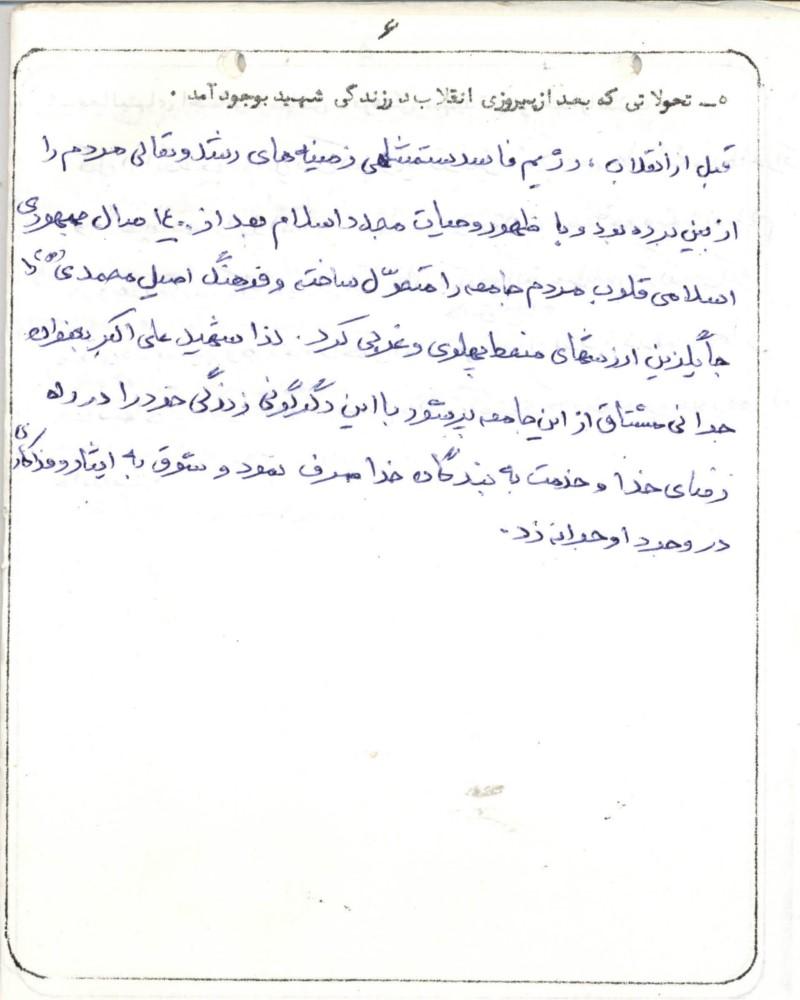 ۶
۵ــ تحولاتی که بعد از پیروزی انقلاب در زندگی شهید بوجود آمد .
قبل از انقلاب ، رژیم فاسد ستمشاهی زمینه‌های رشد و تعالی مردم را
از بین برده بود و با ظهور و حیات مجدد اسلام بعد از ۱۴۰۰ سال جمهوری
اسلامی قلوب مردم جامعه را متحوّل ساخته و فرهنگ اصیل محمدی (ص) را
جایگزین ارزشهای منحط پهلوی و غربی کرد . لذا شهید علی اکبر بعنوان
جوانی مشتاق از این جامعه پرشور با این دگرگونی زندگی خود را در راه
رضای خدا و خدمت به بندگان خدا صرف نمود و شوق به ایثار و فداکاری
در وجود او جوانه زد .